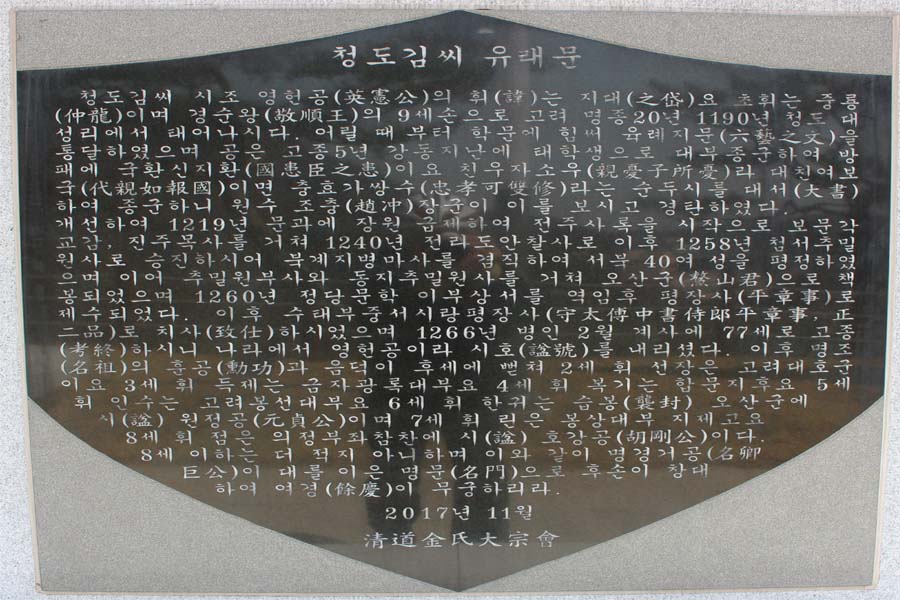 청도김씨 유래문
청도김씨 시조 영헌공(英憲公)의 휘(諱)는 지대(之岱)요 초휘는 중룡
(仲龍)이며 경순왕(敬順王)의 9세손으로 고려 명종20년 1190년 청도 대
성리에서 태어나시다. 어릴 때부터 학문에 힘써 유례지문(六藝之文)을
통달하였으며 공은 고종5년 강동지난에 태학생으로 대부종군하여 방
패에 국환신지환(國患臣之患)이요 친우자소우(親憂子所憂)라 대친여보
국(代親如報國)이면 충효가쌍수(忠孝可雙修)라는 순두시를 대서(大書)
하여 종군하니 원수 조충(趙冲)장군이 이를 보시고 경탄하였다.
개선하여 1219년 문과에 장원 급제하여 전주사록을 시작으로 보문각
교감, 진주목사를 거쳐 1240년 전라도안찰사로 이후 1258년 첨서추밀
원사로 승진하시어 북계지병마사를 겸직하여 서부 40여 성을 평정하였
으며 이어 추밀원부사와 동지추밀원사를 거쳐 오산군(鰲山君)으로 책
봉되었으며 1260년 정당문학 이부상서를 역임후 평장사(平章事)로
제수되었다. 이후 수태부중서시랑평장사(守太傅中書侍郎平章事, 正
二品)로 치사(致仕)하시었으며 1266년 병인 2월 계사에 77세로 고종
(考終)하시니 나라에서 영헌공이라 시호(諡號)를 내리셨다. 이후 명조
(名祖)의 훈공(勳功)과 음덕이 후세에 뻗쳐 2세 휘 선장은 고려대호군
이요 3세 휘 득제는 금자광록대부요 4세 휘 복기는 함문지후요 5세
휘 인수는 고려봉선대부요 6세 휘 한귀는 습봉(襲封) 오산군에
시(諡) 원정공(元貞公)이며 7세 휘 린은 봉상대부 지제고요
8세 휘 점은 의정부좌참찬에 시(諡) 호강공(胡剛公)이다.
8세 이하는 더 적지 아니하며 이와 같이 명경거공(名卿
巨公)이 대를 이은 명문(名門)으로 후손이 창대
하여 여경(餘慶)이 무궁하리라.
2017년 11월
清道金氏大宗會